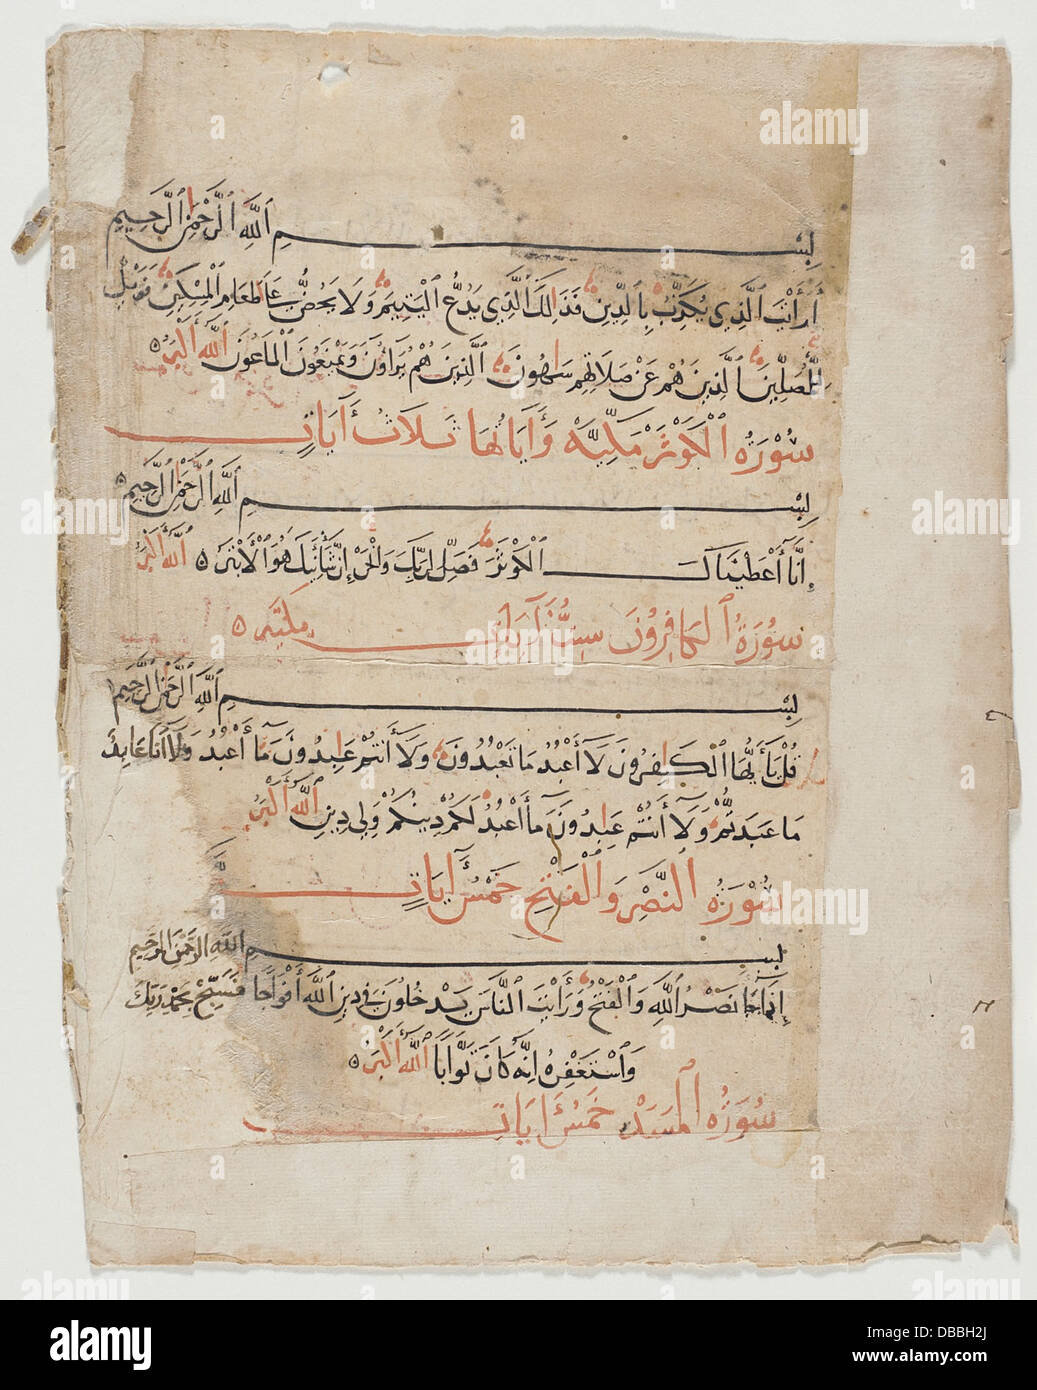 بِسْمِ ٱللَّهِ ٱلرَّحْمَٰنِ ٱلرَّحِيمِ
أَرَأَيْتَ ٱلَّذِي يُكَذِّبُ بِٱلدِّينِ فَذَٰلِكَ ٱلَّذِي يَدُعُّ ٱلْيَتِيمَ وَلَا يَحُضُّ عَلَىٰ طَعَامِ ٱلْمِسْكِينِ فَوَيْلٌ
لِّلْمُصَلِّينَ ٱلَّذِينَ هُمْ عَنْ صَلَاتِهِمْ سَاهُونَ ٱلَّذِينَ هُمْ يُرَآؤُنَ وَيَمْنَعُونَ ٱلْمَاعُونَ ٱللَّهُ أَكْبَرُ ٥
سُورَةُ ٱلْكَوْثَرْ مَكِّيَّةٌ وَءَايَاتُهَا ثَلَاثُ ءَايَاتٍ
بِسْمِ ٱللَّهِ ٱلرَّحْمَٰنِ ٱلرَّحِيمِ ٥
إِنَّآ أَعْطَيْنَاكَ ٱلْكَوْثَرَ فَصَلِّ لِرَبِّكَ وَٱنْحَرْ إِنَّ شَانِئَكَ هُوَ ٱلْأَبْتَرُ ٥ ٱللَّهُ أَكْبَرُ
سُورَةُ ٱلْكَافِرُونَ سِتُّ ءَايَاتٍ مَكِّيَّة ٥
بِسْمِ ٱللَّهِ ٱلرَّحْمَٰنِ ٱلرَّحِيمِ
قُلْ يَٰٓأَيُّهَا ٱلْكَٰفِرُونَ لَآ أَعْبُدُ مَا تَعْبُدُونَ وَلَآ أَنتُمْ عَٰبِدُونَ مَآ أَعْبُدُ وَلَآ أَنَا۠ عَابِدٌ
مَا عَبَدتُّمْ وَلَآ أَنتُمْ عَٰبِدُونَ مَآ أَعْبُدُ لَكُمْ دِينُكُمْ وَلِيَ دِينِ ٱللَّهُ أَكْبَرُ
سُورَةُ ٱلنَّصْرِ وَٱلْفَتْحِ خَمْسُ ءَايَاتٍ
بِسْمِ ٱللَّهِ ٱلرَّحْمَٰنِ ٱلرَّحِيمِ
إِذَا جَا نَصْرُ ٱللَّهِ وَٱلْفَتْحُ وَرَأَيْتَ ٱلنَّاسَ يَدْخُلُونَ فِي دِينِ ٱللَّهِ أَفْوَاجًا فَسَبِّحْ بِحَمْدِ رَبِّكَ
وَٱسْتَغْفِرْهُ إِنَّهُ كَانَ تَوَّابًا ٱللَّهُ أَكْبَرُ ٥
سُورَةُ ٱلْمَسَدْ خَمْسُ ءَايَاتٍ
alamy
Image ID: DBBH2J
www.alamy.com